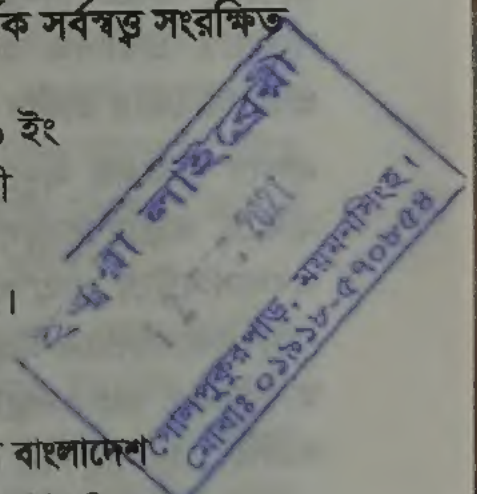 ক সর্বস্বত্ত্ব সংরক্ষিত
ইং
ী
।
লাইব্রেরী
2021
গোলপুকুরপাড়, ময়মনসিংহ।
মোবাঃ ০১৯১৮-৫৭০৮৫৪
বাংলাদেশ